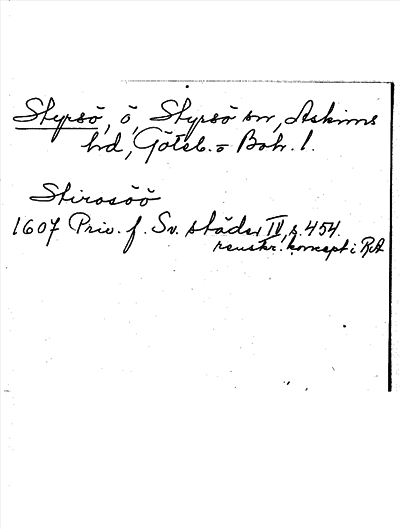 Styrsö, ö, Styrsö sn, Askims
hd, Göteb. o Boh. l.
Stirosöö
1607 Priv. f. Sv. städer IV, s. 454.
renskr. koncept i RA